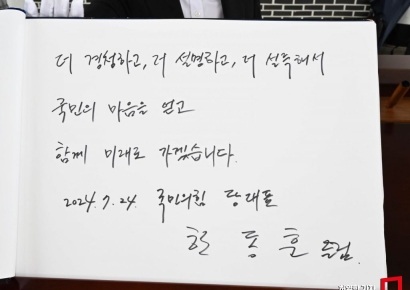 더 경청하고, 더 설명하고, 더 설득해서
국민의 마음을 얻고
함께 미래로 가겠습니다.
2024. 7. 24. 국민의힘 당대표
한 동 훈 올림.